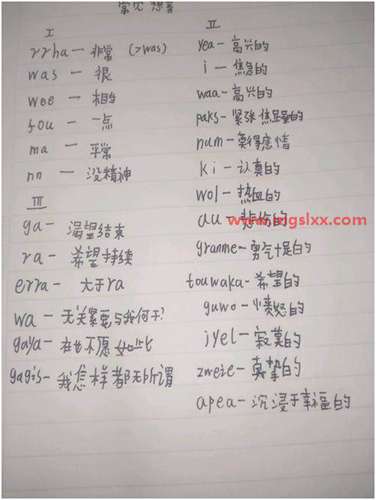 常见想音
I
rrha — 非常 (>was)
was — 很
wee — 相当
fou — 一点
ma — 平常
nn — 没精神
III
ga — 渴望结束
ra — 希望持续
erra — 大于ra
wa — 无关紧要与我何干?
gaya — 再也不愿如此
gagis — 我怎样都无所谓
II
yea — 高兴的
i — 焦急的
waa — 高兴的
paks — 紧张焦虑的
num — 莫得感情
ki — 认真的
wol — 热血的
au — 悲伤的
granme — 勇气十足的
touwaka — 希望的
guwo — 愤怒的
jyel — 寂寞的
zweie — 真挚的
apea — 沉浸于幸福的